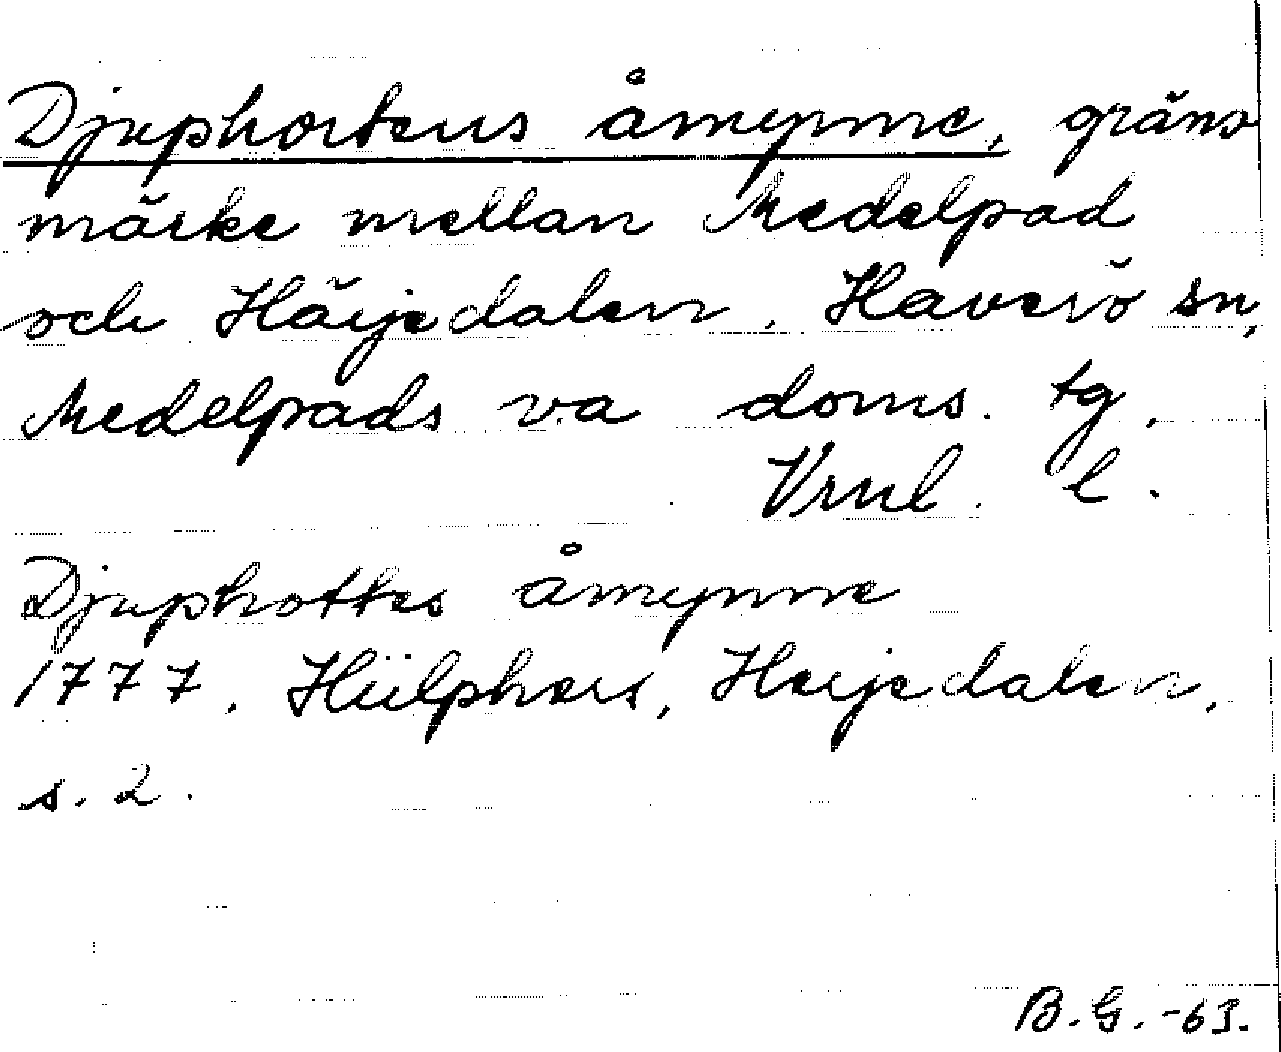 Djuphortens åmynne, gräns
märke mellan Medelpad
och Härjedalen. Haverö sn,
Medelpads v:a doms. tg.
Vrul. l.
Djuphottes åmynne
1777. Hülphers, Herjedalen,
s. 2.
B.G. -63.